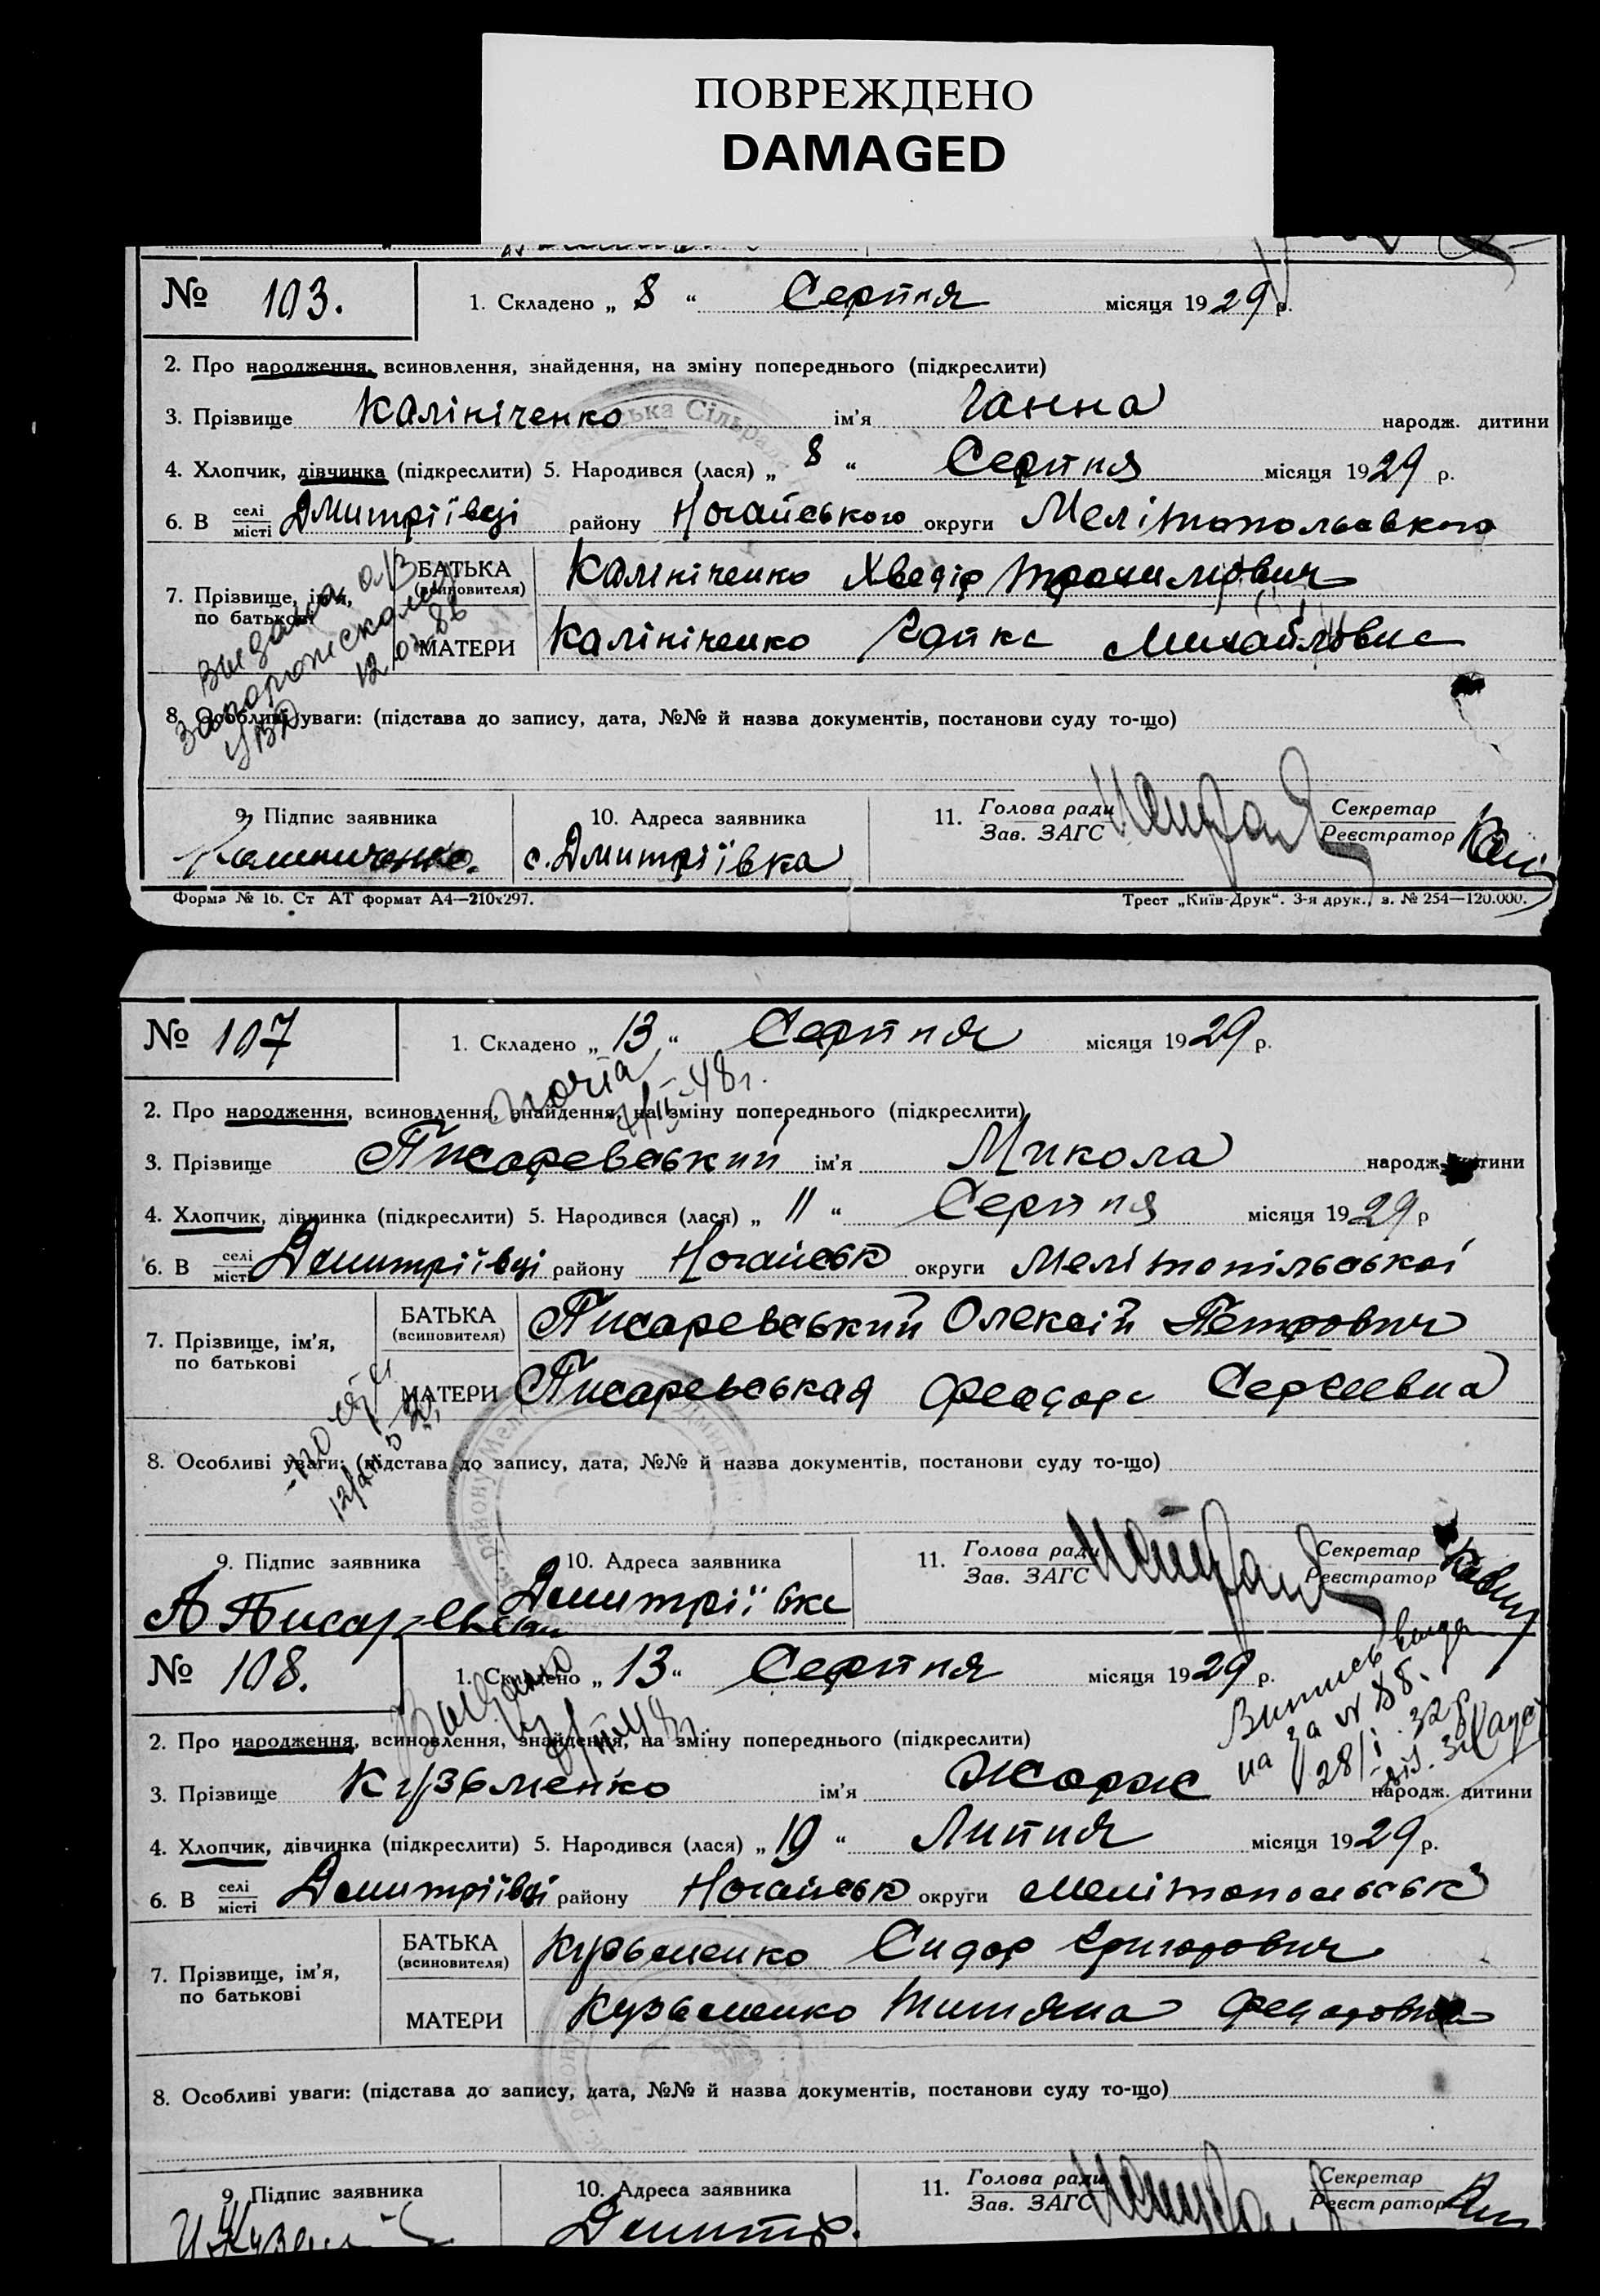 ПОВРЕЖДЕНО
DAMAGED
№ 103. 1. Складено „ 8 “ Серпня місяця 1929 р.
2. Про народження, всиновлення, знайдення, на зміну попереднього (підкреслити)
3. Прізвище Калініченко ім’я Ганна народж. дитини
4. Хлопчик, дівчинка (підкреслити) 5. Народився (лася) „ 8 “ Серпня місяця 1929 р.
6. В селі місті Дмитріївці району Ногайського округи
7. Прізвище, ім’я, по батькові
БАТЬКА (всиновителя) Калініченко Хведір
МАТЕРИ Калініченко Михайловна
12 86
8. Особливі уваги: (підстава до запису, дата, №№ й назва документів, постанови суду то-що)
9. Підпис заявника 10. Адреса заявника 11. Голова ради Зав. ЗАГС Секретар Реєстратор
с. Дмитріївка
Форма № 16. Ст АТ формат А4—210х297. Трест „Київ-Друк“. 3-я друк., з. № 254—120.000.
№ 107 1. Складено „ 13 “ Серпня місяця 1929 р.
48 г.
2. Про народження, всиновлення, знайдення, на зміну попереднього (підкреслити)
3. Прізвище Писаревський ім’я Микола народж. дитини
4. Хлопчик, дівчинка (підкреслити) 5. Народився (лася) „ 11 “ Серпня місяця 1929 р
6. В селі місті Демитріївці району Ногайськ округи
7. Прізвище, ім’я, по батькові
БАТЬКА (всиновителя) Писаревський Олексій Петрович
МАТЕРИ Писаревськая Феодора Сергеевна
8. Особливі уваги: (підстава до запису, дата, №№ й назва документів, постанови суду то-що)
9. Підпис заявника 10. Адреса заявника 11. Голова ради Зав. ЗАГС Секретар Реєстратор
А Писаревск Демитріївка
№ 108. 1. Складено „ 13 “ Серпня місяця 1929 р.
на за № 88.
28/I 32
2. Про народження, всиновлення, знайдення, на зміну попереднього (підкреслити)
3. Прізвище Кузьменко ім’я Жорж народж. дитини
4. Хлопчик, дівчинка (підкреслити) 5. Народився (лася) „ 19 “ Липня місяця 1929 р.
6. В селі місті Демитріївці району Ногайськ округи
7. Прізвище, ім’я, по батькові
БАТЬКА (всиновителя) Кузьменко Сидор Григорович
МАТЕРИ Кузьменко Федоровна
8. Особливі уваги: (підстава до запису, дата, №№ й назва документів, постанови суду то-що)
9. Підпис заявника 10. Адреса заявника 11. Голова ради Зав. ЗАГС Секретар Реєстратор
Демитр.